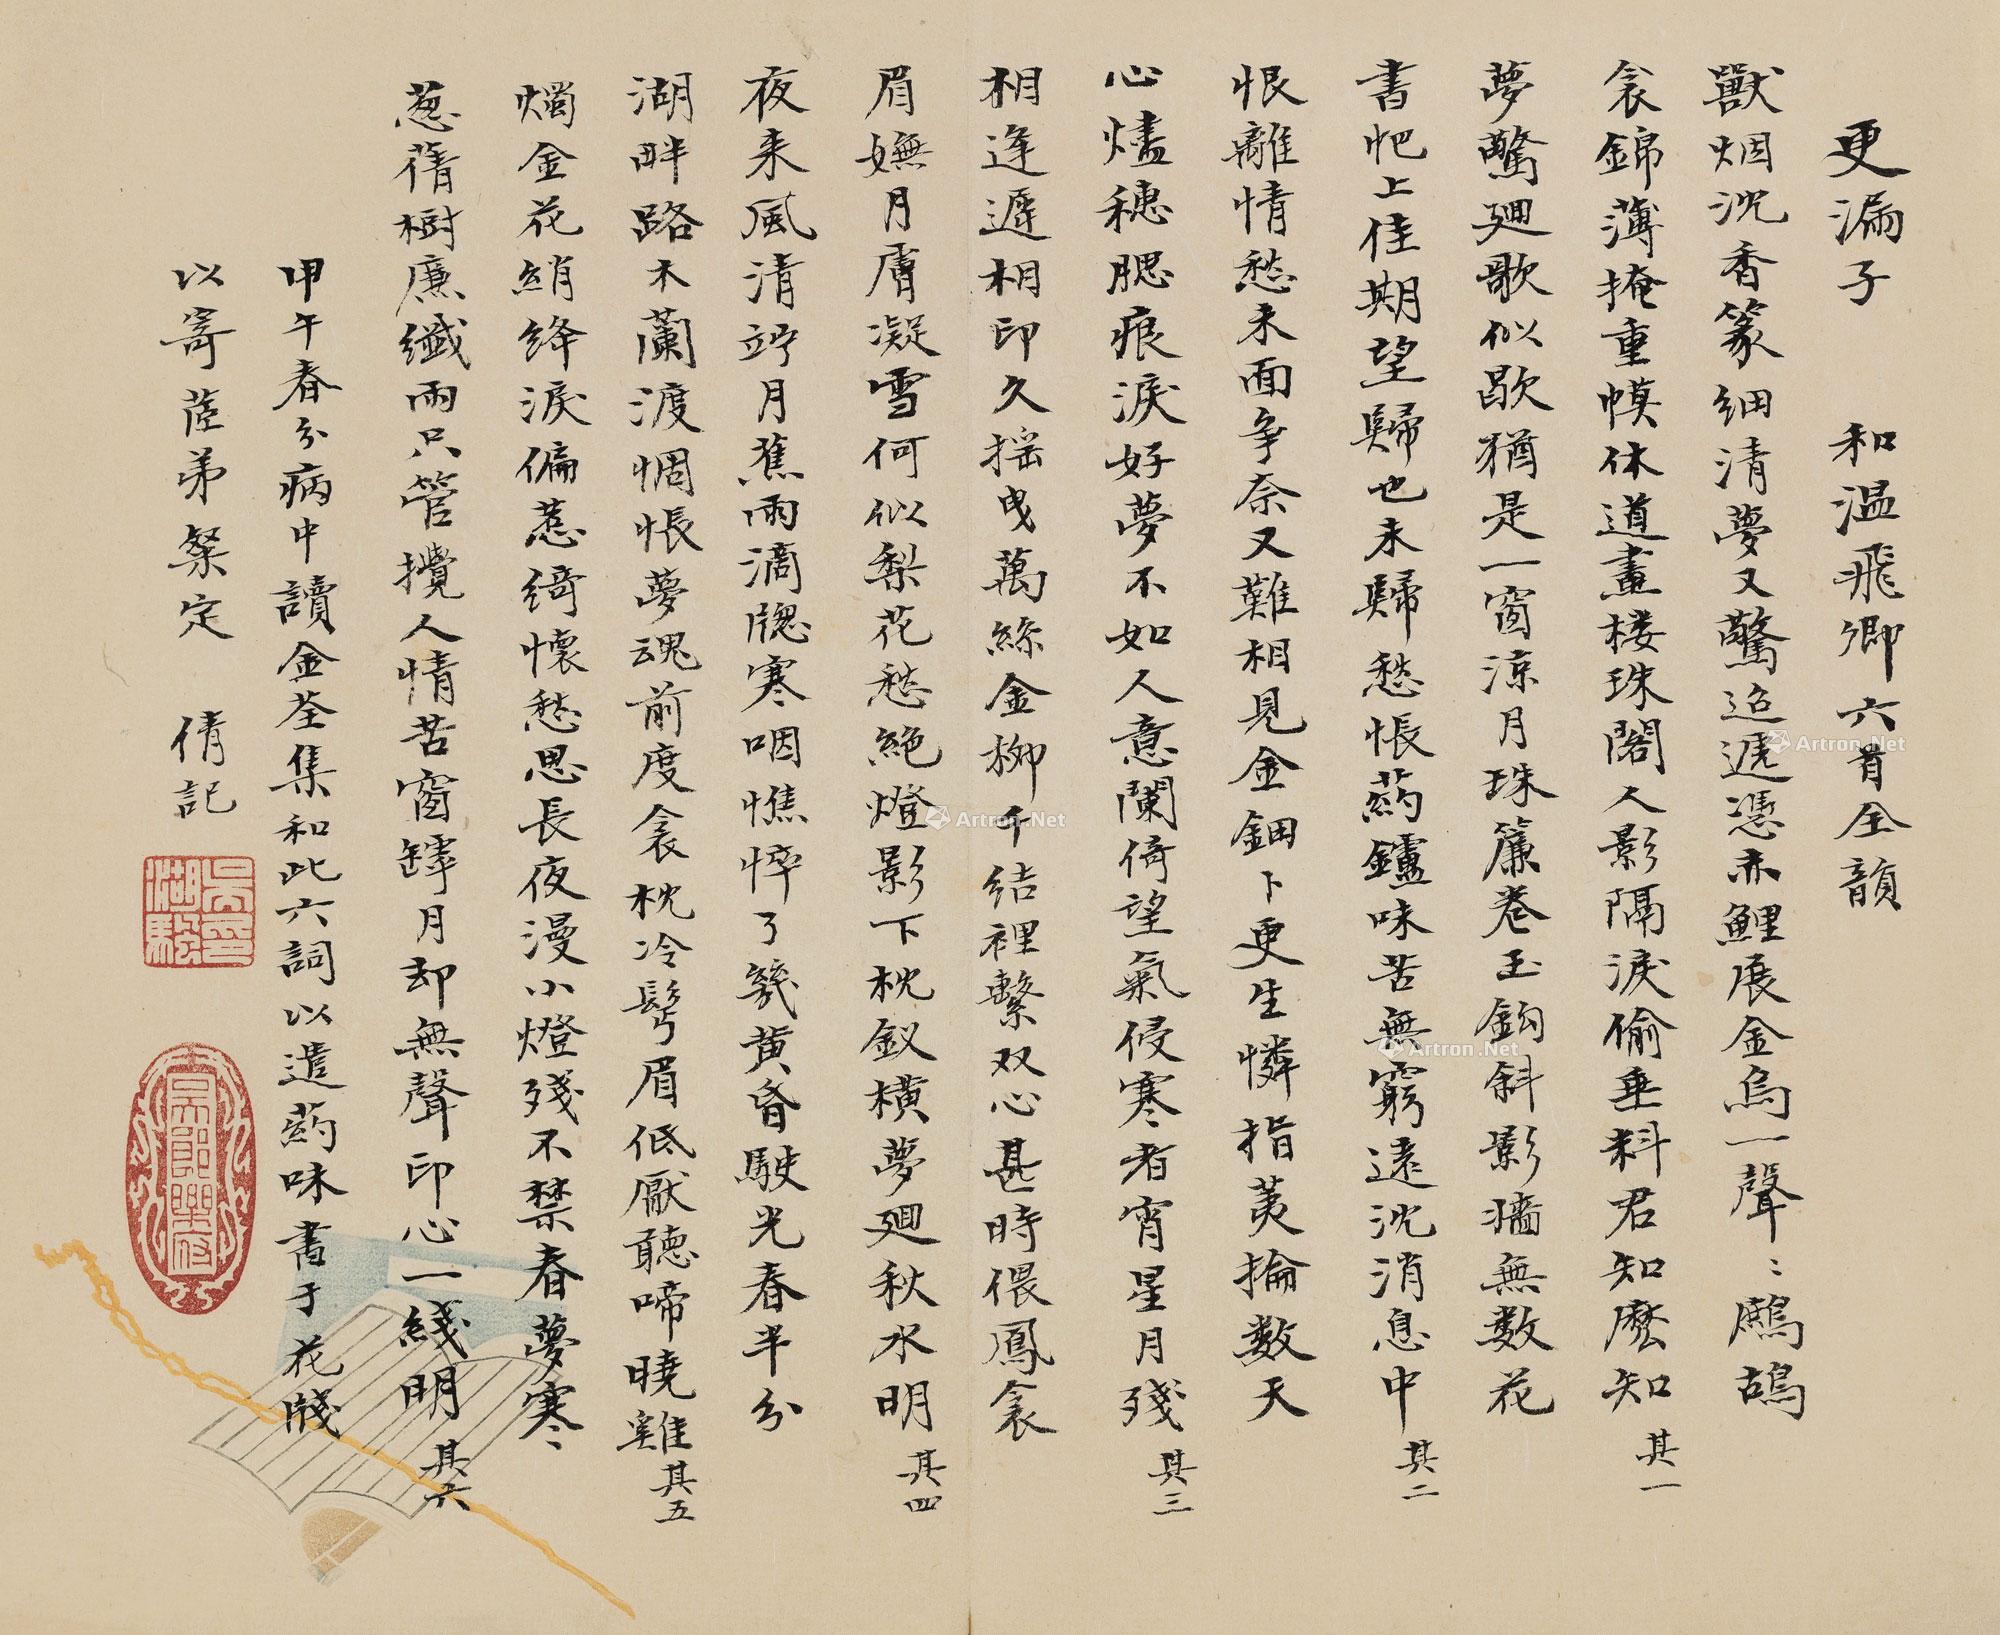 更漏子　和温飛卿六首全韻
獸烟沈香篆細清夢又驚迢遞憑赤鯉展金烏一聲〻鷓鴣
衾錦薄掩重幙休道畫楼珠閣人影隔淚偷垂料君知麼知 其一
夢驚廻歌似歇猶是一窗涼月珠簾卷玉鈎斜影墻無數花
書帊上佳期望歸也未歸愁悵葯鑪味苦無窮遠沈消息中 其二
恨離情愁未面争奈又難相見金鈿卜更生憐指荑掄数天
心燼穗腮痕淚好夢不如人意闌倚望氣侵寒者宵星月殘 其三
相逢遲相印久揺曳萬絲金柳千結裡繫双心甚時偎鳳衾
眉嫵月膚凝雪何似梨花愁絶燈影下枕釵横夢廻秋水明 其四
夜来風清竚月蕉雨滴牕寒咽憔悴了幾黄昏駛光春半分
湖畔路木蘭渡惆悵夢魂前度衾枕冷髩眉低厭聽啼曉雞 其五
燭金花綃绛淚偏惹綺懷愁思長夜漫小燈殘不禁春夢寒〻
葱蒨樹廉纖雨只管攪人情苦窗罅月却無聲印心一綫明 其六
甲午春分病中讀金荃集和此六詞以遣葯味書于花牋
以寄蓝弟粲定　倩記
吳湖颿印